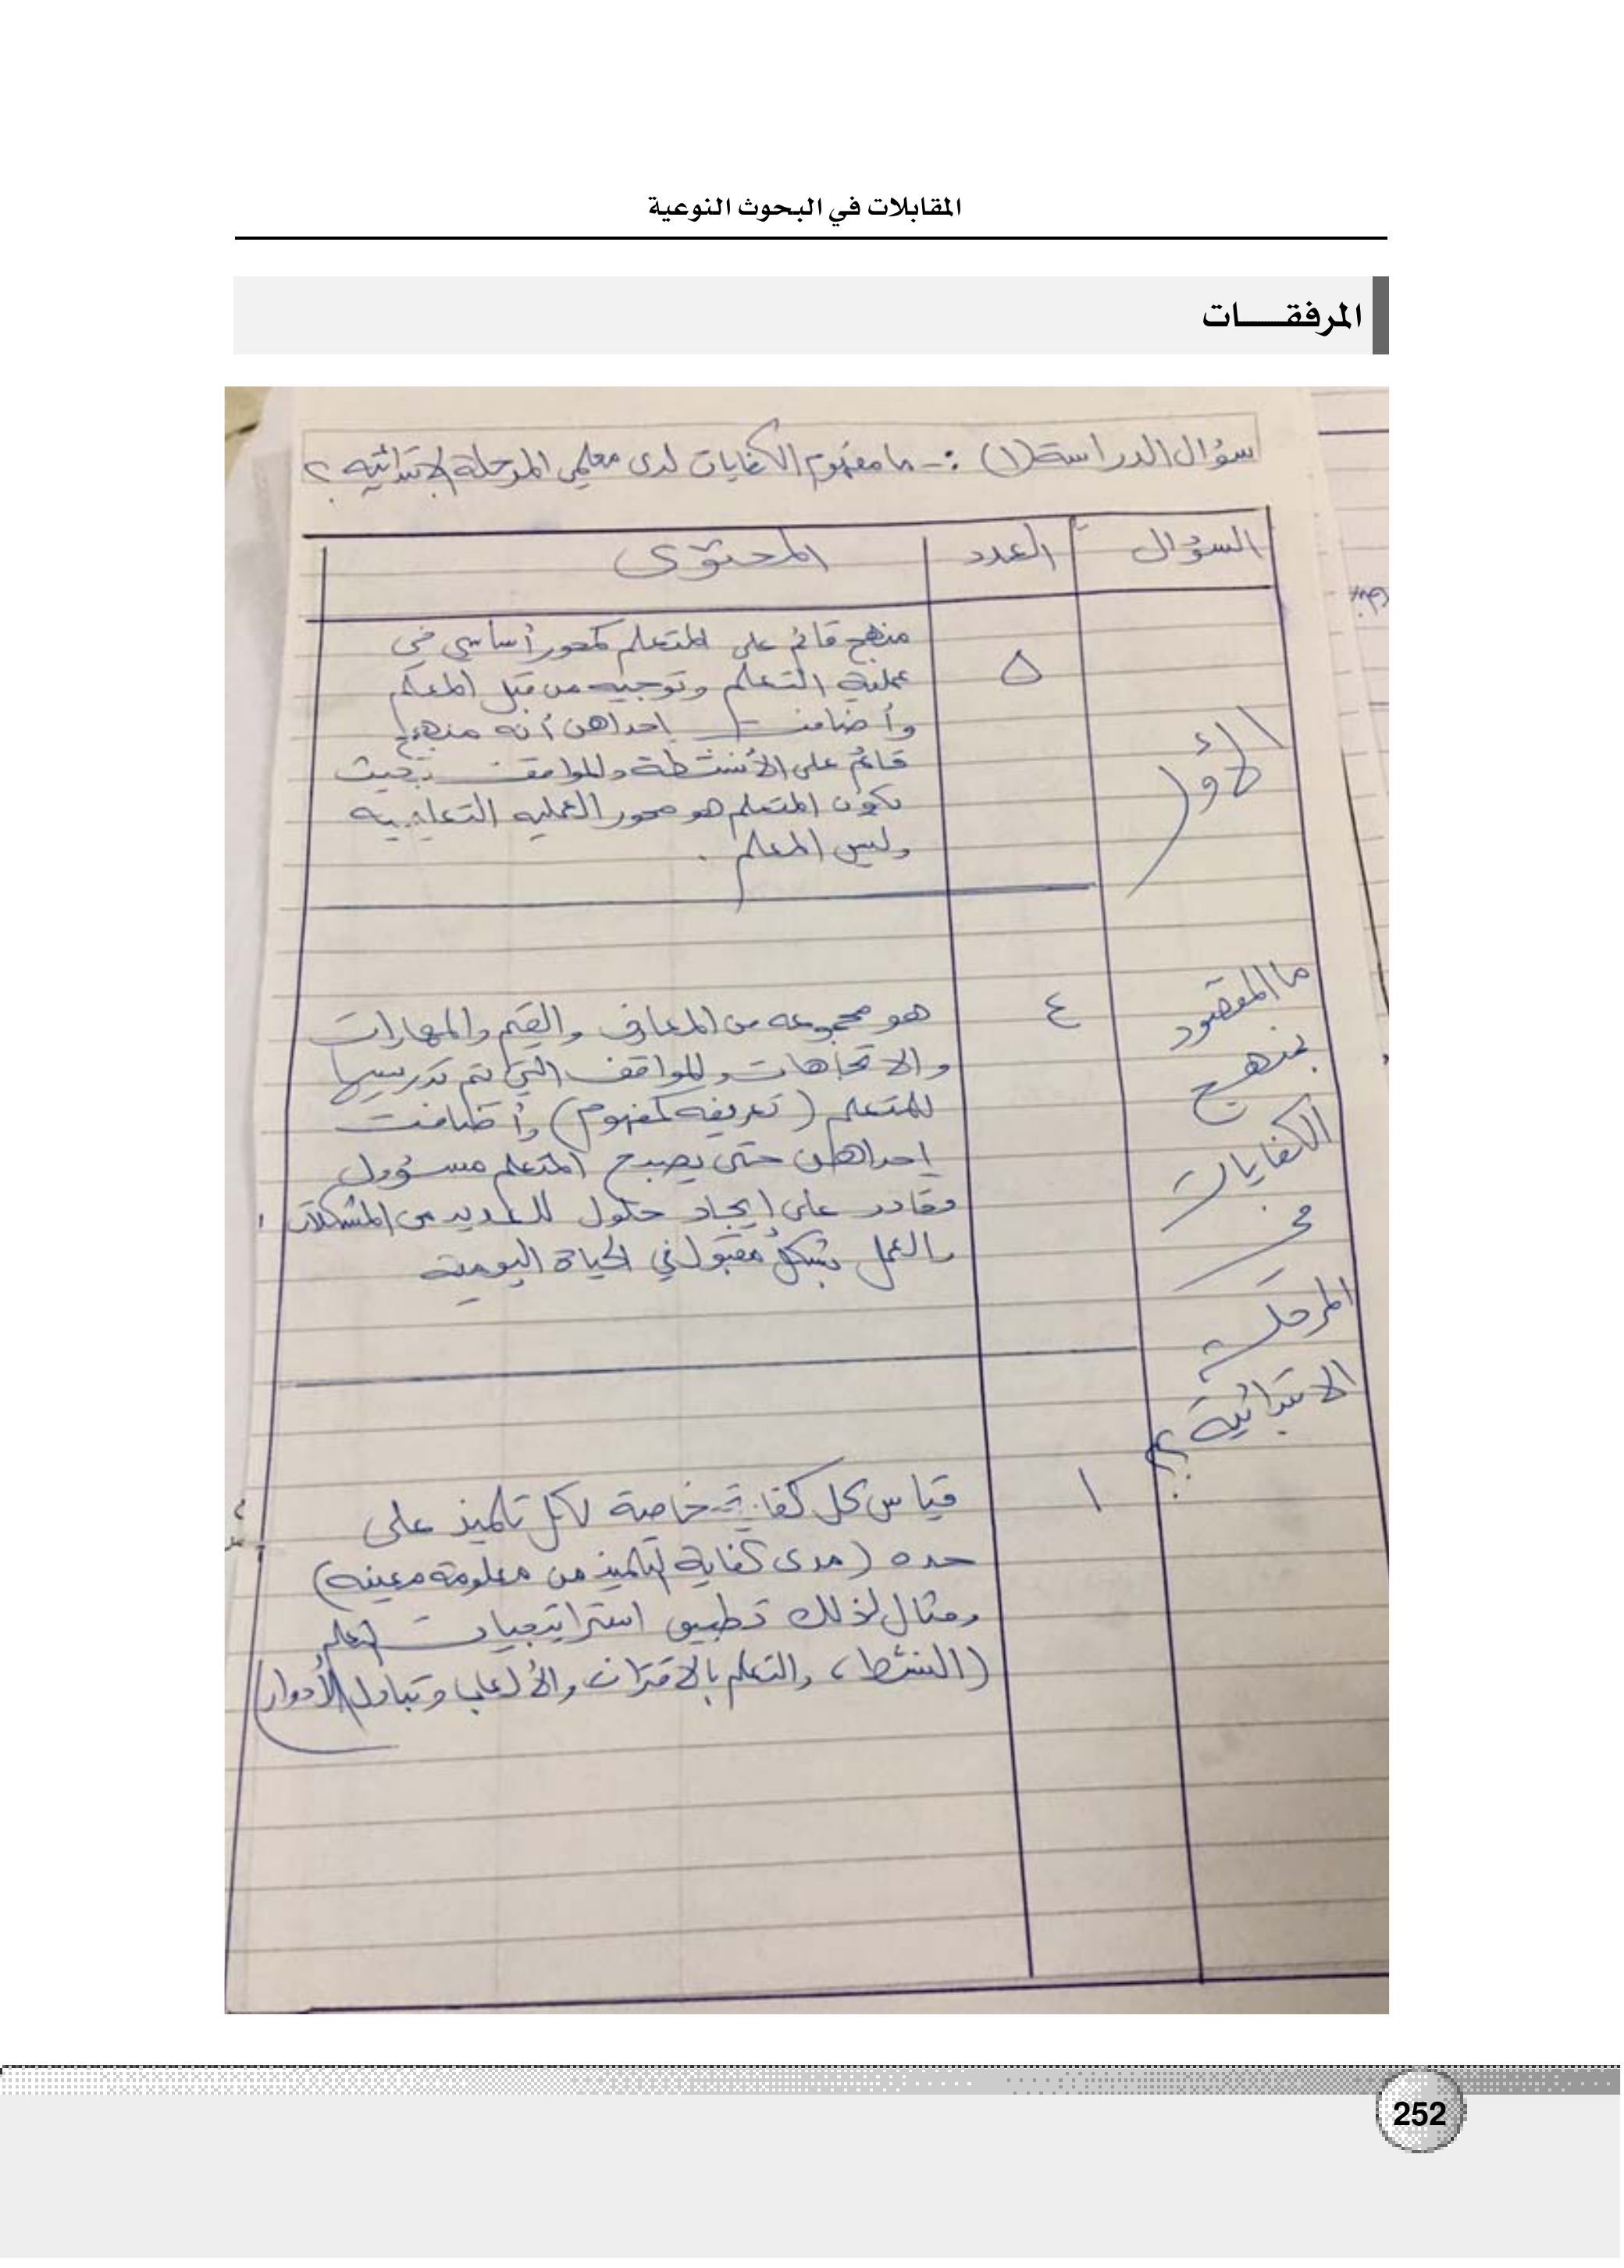 المقابلات في البحوث النوعية
المرفقـــات
سؤال الدراسة (١) :- ما مفهوم الكفايات لدى معلمي المرحلة الابتدائيه ؟
السؤال
العدد
المحتوى
الأول
ما المقصود
بمنهج
الكفايات
في
المرحلة
الابتدائية ؟
٥
منهج قائم على المتعلم كمحور أساسي في
عملية التعلم وتوجيه من قبل المعلم
وأضافت إحداهن أنه منهج
قائم على الأنشطة والمواقف بحيث
يكون المتعلم هو محور العمليه التعليميه
وليس المعلم .
٤
هو مجموعه من المعارف والقيم والمهارات
والاتجاهات والمواقف التي يتم تدريسها
للمتعلم (تعريفه كمفهوم) وأضافت
إحداهن حتى يصبح المتعلم مسؤول
وقادر على إيجاد حلول للعديد من المشكلات
والعمل بشكل مقبول في الحياة اليومية
١
قياس كل كفاية خاصة لكل تلميذ على
حده (مدى كفاية التلميذ من معلومة معينه)
ومثال لذلك تطبيق استراتيجيات التعلم
(النشط ، والتعلم بالأقران والألعاب وتبادل الأدوار)
252